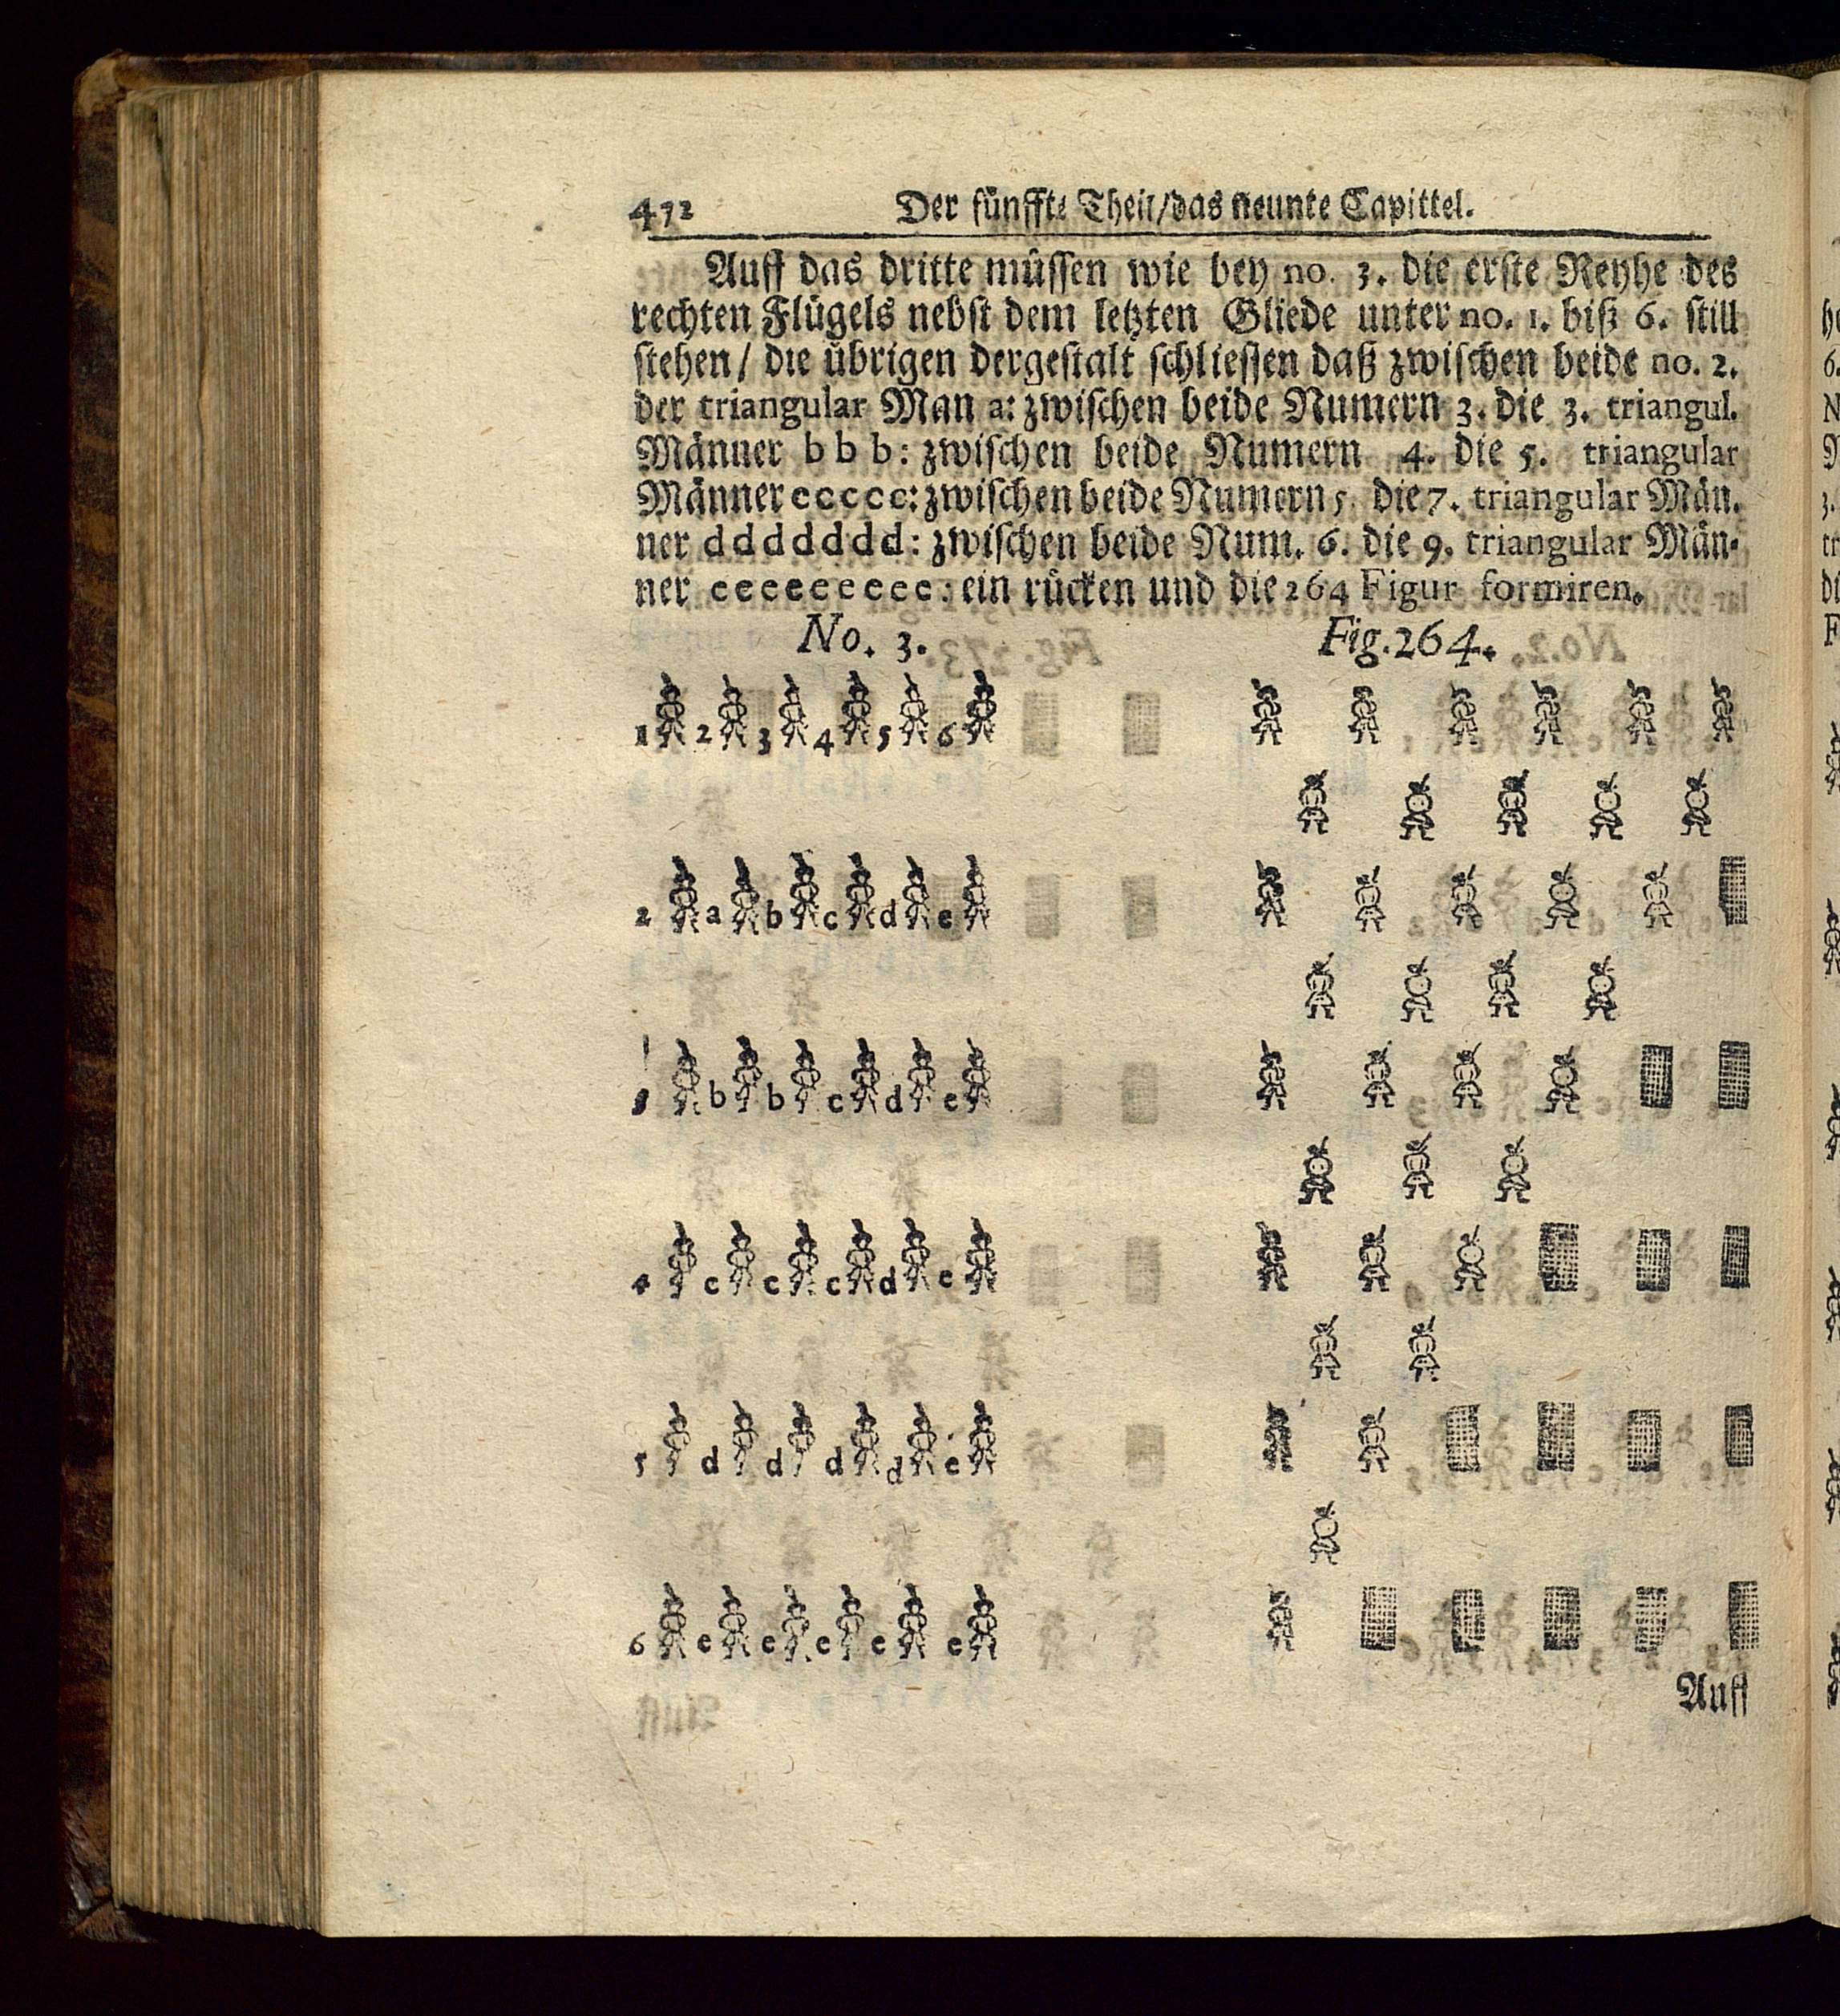 472 Der fünffte Theil/das neunte Capittel.
Auff das dritte müssen wie bey no. 3. die erste Reyhe des
rechten Flügels nebst dem letzten Gliede unter no. 1. biß 6. still
stehen/ die übrigen dergestalt schliessen daß zwischen beide no. 2.
der triangular Man a: zwischen beide Numern 3. die 3. triangul.
Männer b b b: zwischen beide Numern 4. die 5. triangular
Männer c c c c c: zwischen beide Numern 5. die 7. triangular Män-
ner d d d d d d d: zwischen beide Num. 6. die 9. triangular Män-
ner e e e e e e e e e: ein rücken und die 264 Figur formiren.
No. 3. Fig. 264.
1 2 3 4 5 6
2 a b c d e
3 b b c d e
4 c c c d e
5 d d d d e
6 e e e e e
Auff